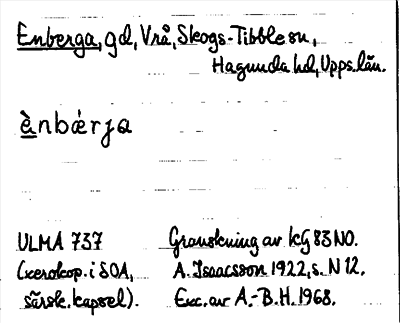 Enberga, gd, Vrå, Skogs-Tibble sn,
Hagunda hd, Upps. län.
ènbǽrja
ULMA 737
(xerokop. i SOA,
särsk. kapsel).
Granskning av kG 83 NO.
A. Isaacsson 1922, s. N 12.
Exc. av A.-B.H. 1968.